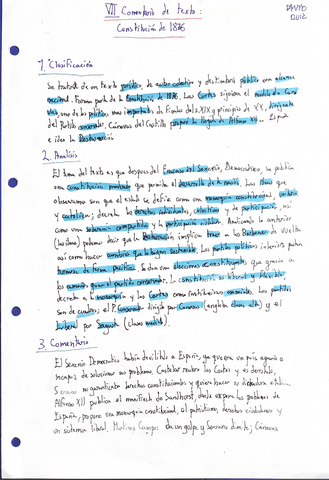 VII Comentario de texto:
Constitución de 1876
DAVID
RUIZ
1. Clasificación
Se trata de un texto político, de autor colectivo y destinatario público con alcance
nacional. Forma parte de la Constitución de 1876. Las Cortes siguieron el modelo de Cáno
vas, uno de los políticos más importantes de finales del s.XIX y principio de XX,
del Partido conservador. Cánovas del Castillo la llegada de Alfonso XII a España
e ideó la Restauración
2. Análisis
El tema del texto es que después del fracaso del Sexenio Democrático, se publica
una constitución moderada que permita el desarrollo de la nación. Las ideas que
observamos son que el estado se define como monarquía constitucional,
y católica; decreta los derechos individuales, colectivos y de participación, así
como una soberanía compartida y la participación pública. Analizando lo anterior
podemos decir que la Restauración traer a los Borbones de vuelta
así como hacer cambios que la hagan sostenible. Los partidos políticos intentan poder
turnarse de forma pacífica. Se dan unas elecciones constituyentes que gracias a
los ganará el partido conservador. La constitución es liberal y flexible,
decreta a la monarquía y las Cortes como instituciones Los partidos
son de cuadros; el P. Conservador dirigido por Cánovas (engloba clase alta) y el
Liberal por Sagasta (clase media).
3. Comentario
El Sexenio Democrático había debilitado a España, ya que era un país
incapaz de solucionar sus problemas. Castelar reabre las Cortes y es derrotado,
Serrano no garantizaba derechos constitucionales y quiere hacer su dictadura
Alfonso XII publica el manifiesto de Sandhurst, donde expone los problemas de
España, propone una monarquía constitucional, el patriotismo, derechos ciudadanos y
un sistema liberal. Martínez Campos da un golpe y Serrano dimite; Cánovas